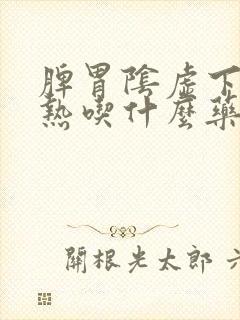 脾胃陰虛下
熱喫什麼藥
關根光太郎 六